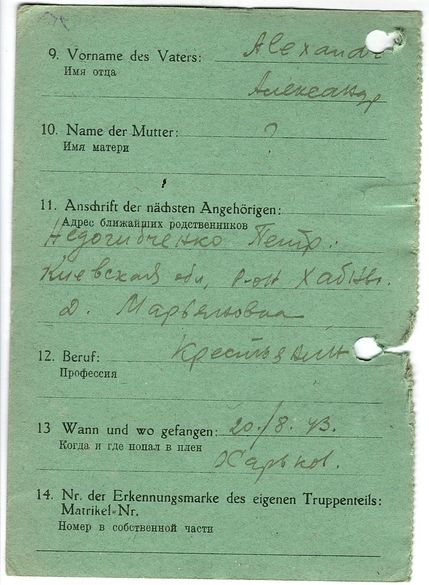 9. Vorname des Vaters: Alexandr
Имя отца
Александр
10. Name der Mutter: ?
Имя матери
11. Anschrift der nächsten Angehörigen:
Адрес ближайших родственников
Петр.
Киевская обл, р-он Хабн.
д. Марьяновка
12. Beruf: Крестьянин
Профессия
13 Wann und wo gefangen: 20./8. 43.
Когда и где попал в плен
Харьков.
14. Nr. der Erkennungsmarke des eigenen Truppenteils:
Matrikel-Nr.
Номер в собственной части